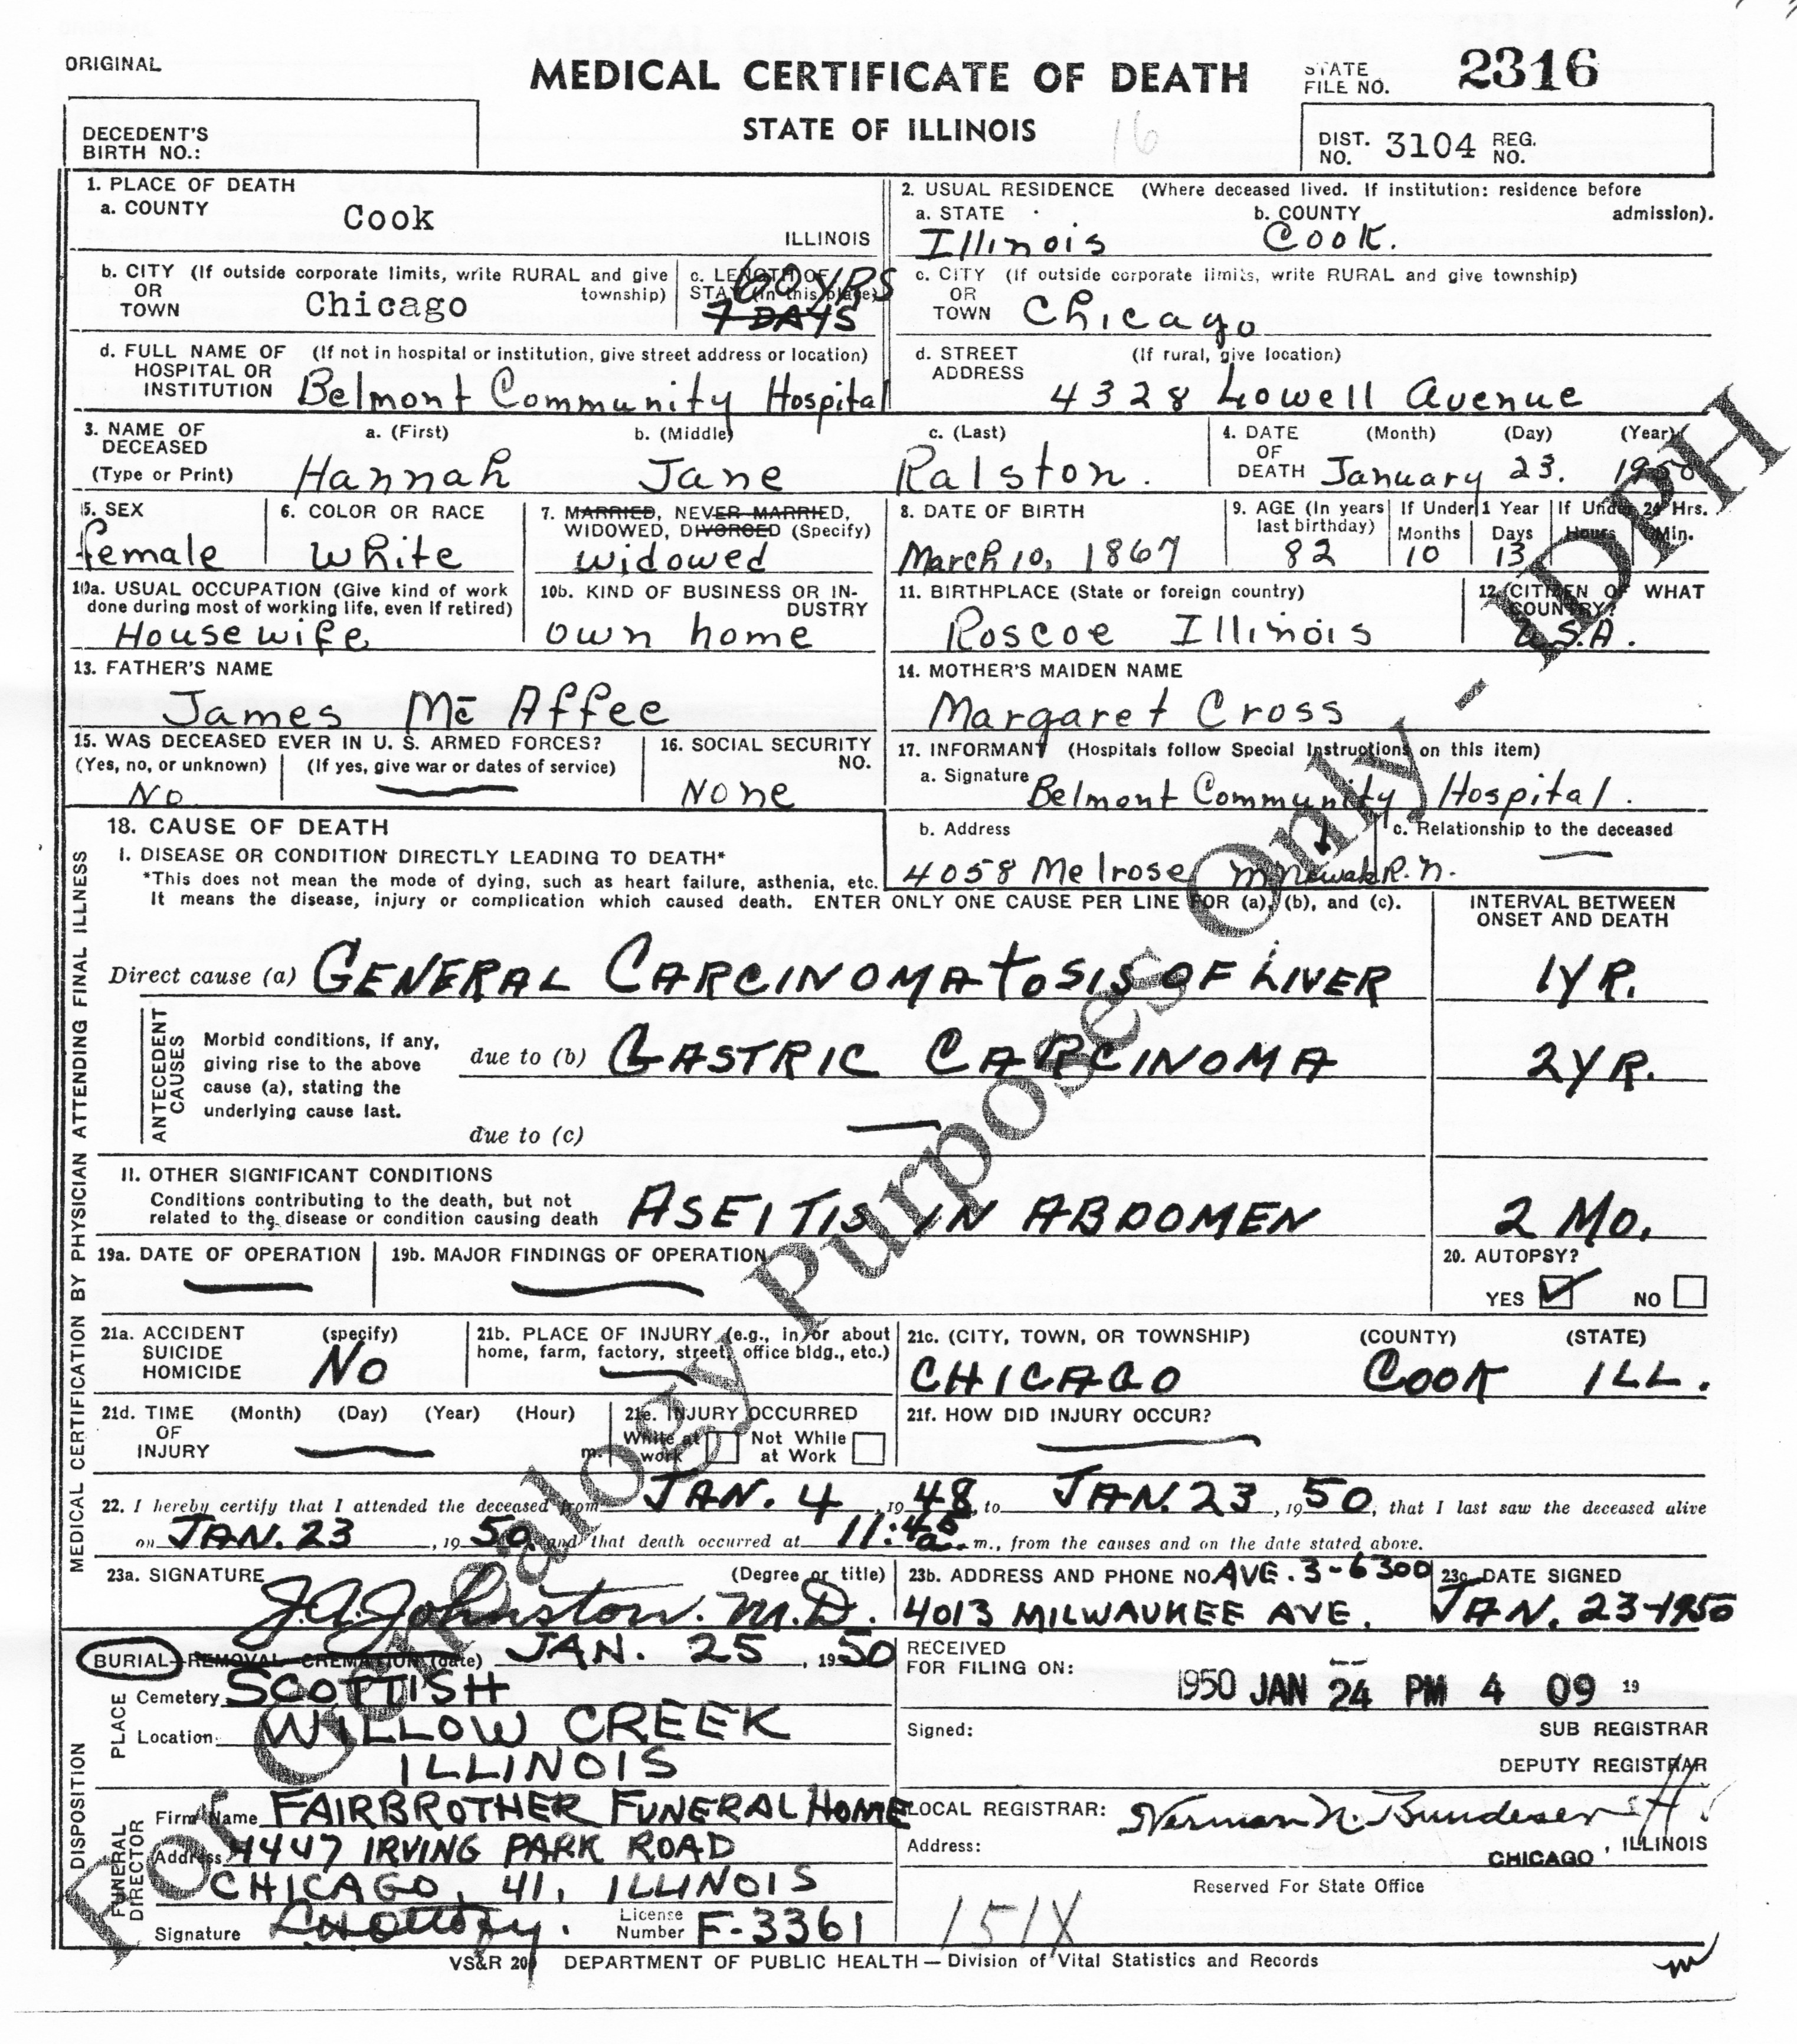 ORIGINAL
MEDICAL CERTIFICATE OF DEATH
STATE FILE NO. 2316
STATE OF ILLINOIS
16
DECEDENT'S BIRTH NO.:
DIST. NO. 3104 REG. NO.
1. PLACE OF DEATH
a. COUNTY Cook ILLINOIS
2. USUAL RESIDENCE (Where deceased lived. If institution: residence before admission).
a. STATE Illinois b. COUNTY Cook.
b. CITY OR TOWN (If outside corporate limits, write RURAL and give township) Chicago
c. LENGTH OF STAY (in this place) 60 YRS
7 DAYS
c. CITY OR TOWN (If outside corporate limits, write RURAL and give township) Chicago
d. FULL NAME OF HOSPITAL OR INSTITUTION (If not in hospital or institution, give street address or location) Belmont Community Hospital
d. STREET ADDRESS (If rural, give location) 4328 Lowell Avenue
3. NAME OF DECEASED (Type or Print) a. (First) Hannah b. (Middle) Jane c. (Last) Ralston.
4. DATE OF DEATH (Month) (Day) (Year) January 23. 1950
5. SEX female
6. COLOR OR RACE White
7. MARRIED, NEVER MARRIED, WIDOWED, DIVORCED (Specify) widowed
8. DATE OF BIRTH March 10, 1867
9. AGE (In years last birthday) 82 If Under 1 Year Months 10 Days 13 If Under 24 Hrs. Hours Min.
10a. USUAL OCCUPATION (Give kind of work done during most of working life, even if retired) Housewife
10b. KIND OF BUSINESS OR INDUSTRY own home
11. BIRTHPLACE (State or foreign country) Roscoe Illinois
12. CITIZEN OF WHAT COUNTRY? U.S.A.
13. FATHER'S NAME James Mc Affee
14. MOTHER'S MAIDEN NAME Margaret Cross
15. WAS DECEASED EVER IN U. S. ARMED FORCES? (Yes, no, or unknown) No (If yes, give war or dates of service)
16. SOCIAL SECURITY NO. None
17. INFORMANT (Hospitals follow Special Instructions on this item)
a. Signature Belmont Community Hospital.
b. Address 4058 Melrose R.N.
c. Relationship to the deceased
MEDICAL CERTIFICATION BY PHYSICIAN ATTENDING FINAL ILLNESS
18. CAUSE OF DEATH
I. DISEASE OR CONDITION DIRECTLY LEADING TO DEATH*
*This does not mean the mode of dying, such as heart failure, asthenia, etc.
It means the disease, injury or complication which caused death. ENTER ONLY ONE CAUSE PER LINE FOR (a), (b), and (c).
INTERVAL BETWEEN ONSET AND DEATH
Direct cause (a) GENERAL CARCINOMATOSIS OF LIVER 1 YR.
ANTECEDENT CAUSES
Morbid conditions, if any, giving rise to the above cause (a), stating the underlying cause last.
due to (b) GASTRIC CARCINOMA 2 YR.
due to (c)
II. OTHER SIGNIFICANT CONDITIONS
Conditions contributing to the death, but not related to the disease or condition causing death ASEITIS IN ABDOMEN 2 MO.
19a. DATE OF OPERATION
19b. MAJOR FINDINGS OF OPERATION
20. AUTOPSY?
YES NO
21a. ACCIDENT SUICIDE HOMICIDE (specify) NO
21b. PLACE OF INJURY (e.g., in or about home, farm, factory, street, office bldg., etc.)
21c. (CITY, TOWN, OR TOWNSHIP) (COUNTY) (STATE)
CHICAGO COOK ILL.
21d. TIME OF INJURY (Month) (Day) (Year) (Hour) m.
21e. INJURY OCCURRED While at work Not While at Work
21f. HOW DID INJURY OCCUR?
22. I hereby certify that I attended the deceased from JAN. 4, 1948, to JAN. 23, 1950, that I last saw the deceased alive
on JAN. 23, 1950, and that death occurred at 11:45 a.m., from the causes and on the date stated above.
23a. SIGNATURE (Degree or title) J.A. Johnston. M.D.
23b. ADDRESS AND PHONE NO. AVE. 3-6300
4013 MILWAUKEE AVE.
23c. DATE SIGNED JAN. 23-1950
DISPOSITION
BURIAL-REMOVAL-CREMATION (date) JAN. 25, 1950
PLACE
Cemetery SCOTTISH
Location WILLOW CREEK
ILLINOIS
RECEIVED FOR FILING ON:
1950 JAN 24 PM 4 09 19
Signed: SUB REGISTRAR
DEPUTY REGISTRAR
FUNERAL DIRECTOR
Firm Name FAIRBROTHER FUNERAL HOME
Address 4447 IRVING PARK ROAD
CHICAGO, 41, ILLINOIS
Signature License Number F-3361
LOCAL REGISTRAR: Herman N. Bundesen
Address: CHICAGO, ILLINOIS
Reserved For State Office
151X
VS&R 200 DEPARTMENT OF PUBLIC HEALTH — Division of Vital Statistics and Records
For Genealogy Purposes Only - IDPH